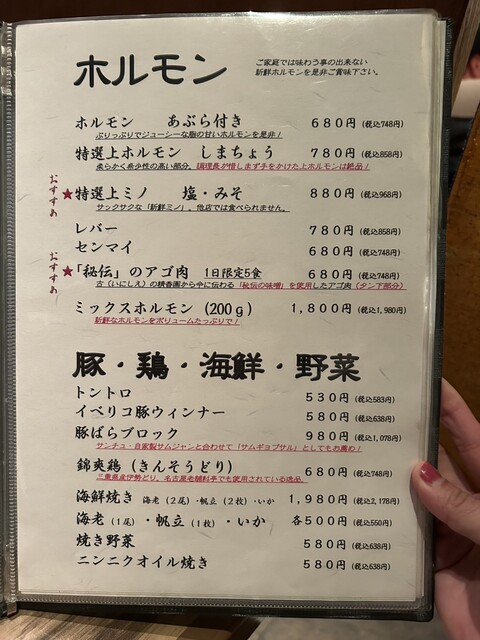 ホルモン
ご家庭では味わう事の出来ない
新鮮ホルモンを是非ご賞味下さい。
ホルモン あぶら付き 680円(税込748円)
ぷりっぷりでジューシーな脂の甘いホルモンを是非!
特選上ホルモン しまちょう 780円(税込858円)
柔らかく希少性の高い部分、調理長が惜しまず手をかけた上ホルモンは絶品!
おすすめ
★特選上ミノ 塩・みそ 880円(税込968円)
サックサクな「新鮮ミノ」、他店では食べられません。
レバー 780円(税込858円)
センマイ 680円(税込748円)
おすすめ
★「秘伝」のアゴ肉 1日限定5食 680円(税込748円)
古(いにしえ)の精香園から今に伝わる「秘伝の味噌」を使用したアゴ肉(タン下部分)
ミックスホルモン(200g) 1,800円(税込1,980円)
新鮮なホルモンをボリュームたっぷりで!
豚・鶏・海鮮・野菜
トントロ 530円(税込583円)
イベリコ豚ウィンナー 580円(税込638円)
豚ばらブロック 980円(税込1,078円)
サンチュ・自家製サムジャンと合わせて「サムギョプサル」としてもお薦め!
錦爽鶏(きんそうどり) 680円(税込748円)
三重県産伊勢どり、名古屋老舗料亭でも使用されている逸品。
海鮮焼き 海老(2尾)・帆立(2枚)・いか 1,980円(税込2,178円)
海老(1尾)・帆立(1枚)・いか 各500円(税込550円)
焼き野菜 580円(税込638円)
ニンニクオイル焼き 580円(税込638円)